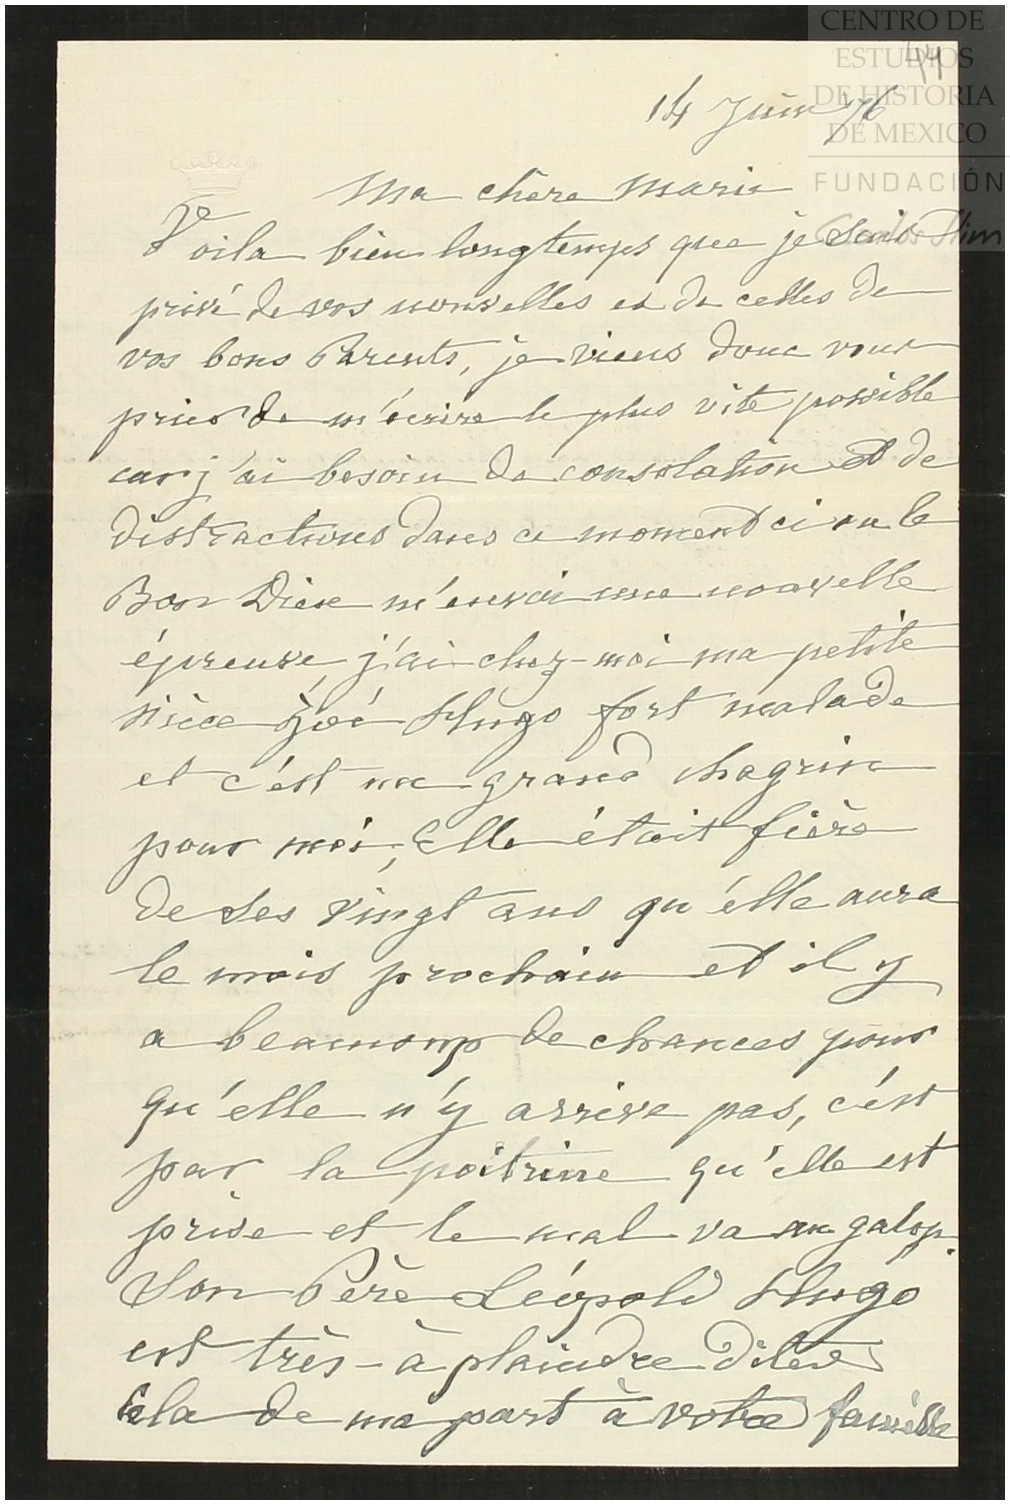 CENTRO DE
ESTUDIOS
DE HISTORIA
DE MEXICO
FUNDACIÓN
Carlos Slim
44
14 Juin 76
Ma chère Marie
Voila bien longtemps que je suis
privé de vos nouvelles et de celles de
vos bons Parents, je viens donc vous
prier de m'écrire le plus vite possible
car j'ai besoin de consolation et de
distractions dans ce moment ci ou le
Bon Dieu m'envoi une nouvelle
épreuve, j'ai chez-moi ma petite
nièce Zoé Hugo fort malade
et c'est un grand chagrin
pour moi, Elle était fière
de ses vingt ans qu'elle aura
le mois prochain et il y
a beaucoup de chances pour
qu'elle n'y arrive pas, c'est
par la poitrine qu'elle est
prise et le mal va au galop.
Son Père Léopold Hugo
est très-à plaindre dites
cela de ma part à votre famille